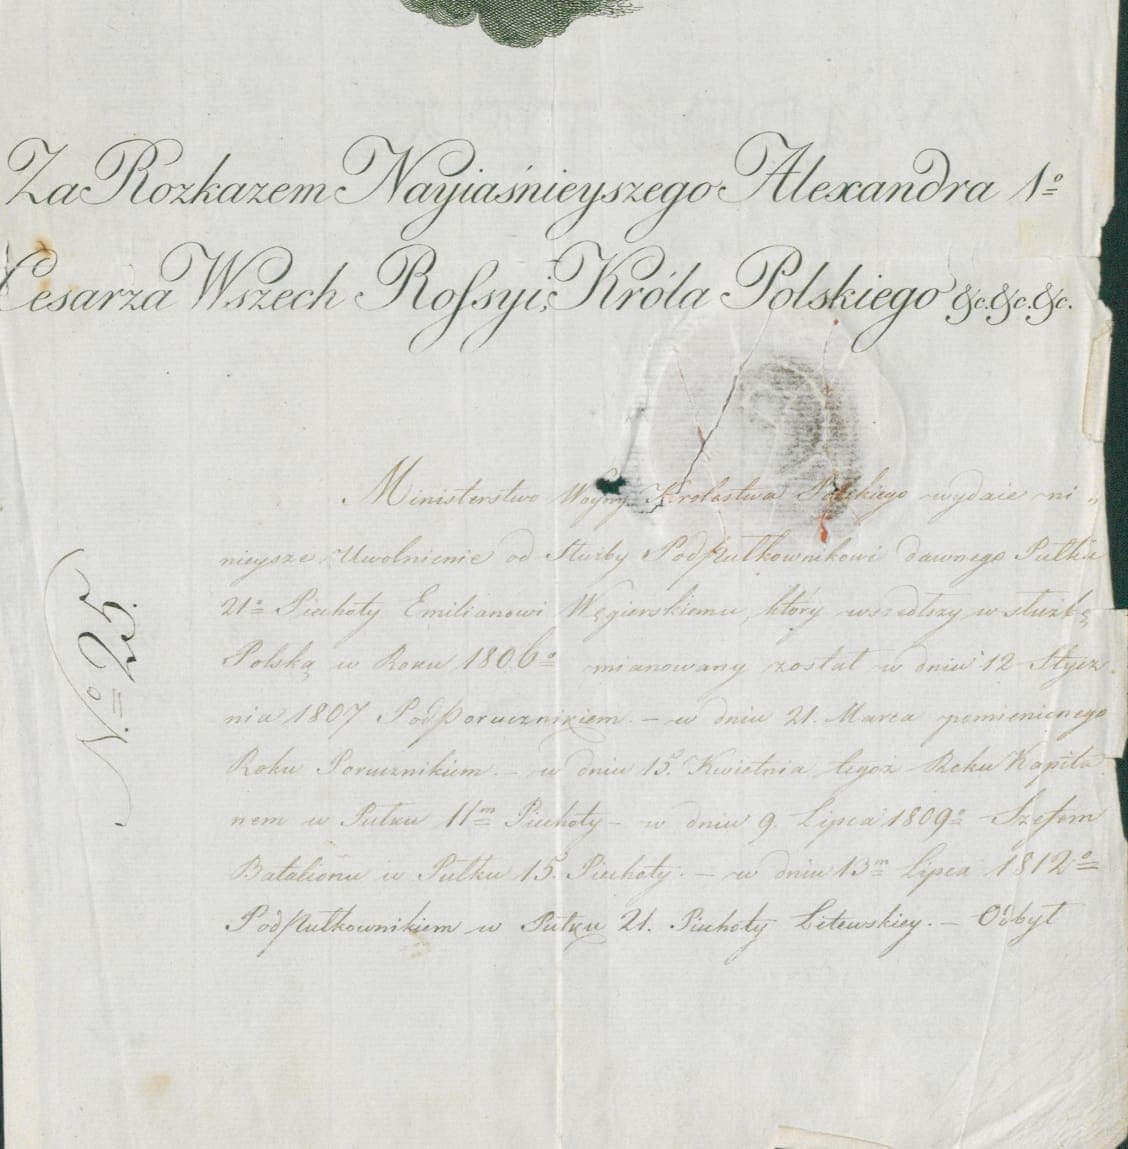 Za Rozkazem Nayjaśnieyszego Alexandra 1o
Cesarza Wszech Rossyi, Króla Polskiego &c.&c.&c.
Ministerstwo Woyny Krolestwa Polskiego wydaie ni
nieysze Uwolnienie od Służby PodPułkownikowi dawnego Pułku
21o Piechoty Emilianowi Węgierskiemu, który wszedłszy w służbę
Polską w Roku 1806o mianowany został w dniu 12 Stycz
nia 1807 PodPorucznikiem. – w dniu 21. Marca pomienionego
Roku Porucznikiem. – w dniu 15. Kwietnia tegoż Roku Kapita
nem w Pułku 11m Piechoty – w dniu 9. Lipca 1809o Szefem
Batalionu w Pułku 15 Piechoty. – w dniu 13m Lipca 1812o
PodPułkownikiem w Pułku 21. Piechoty Litewskiey. – Odbył
No 25.